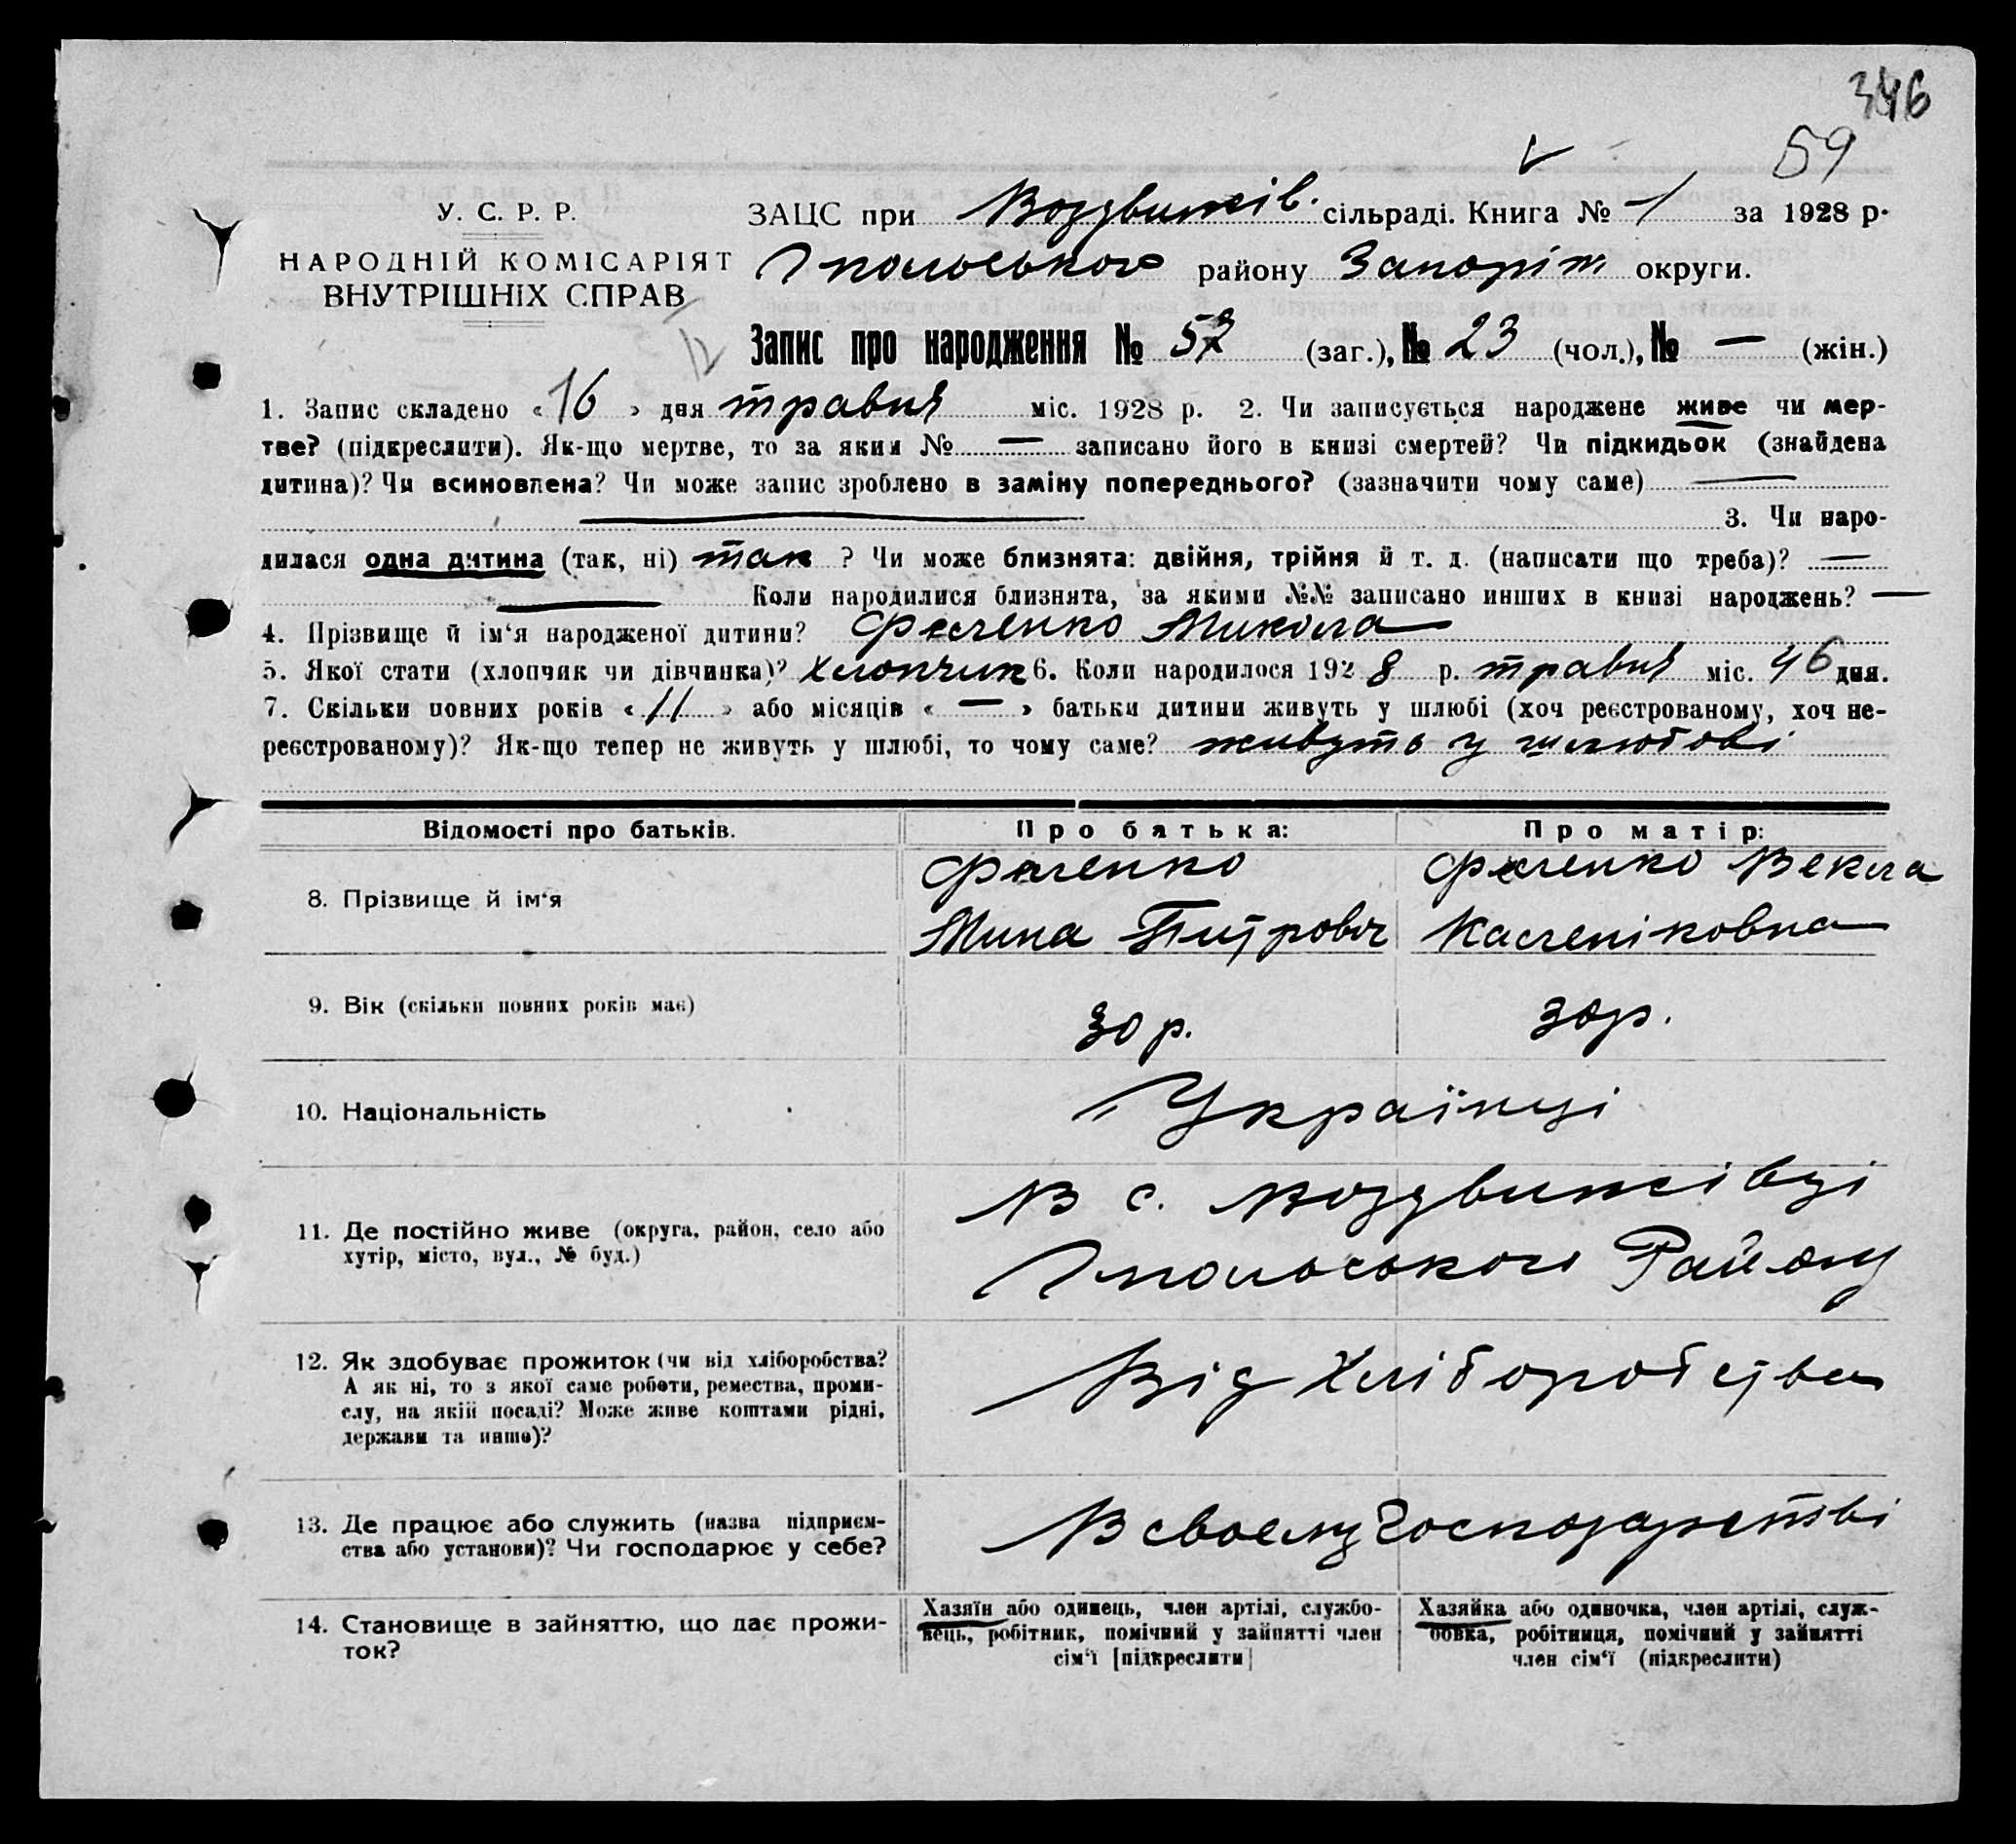 346
59
У. С. Р. Р.
НАРОДНІЙ КОМІСАРІЯТ
ВНУТРІШНІХ СПРАВ
ЗАЦС при Воздвижів. сільраді. Книга № 1 за 1928 р.
Гпольського району Запоріж округи.
Запис про народження № (заг.), № 23 (чол.), № — (жін.)
1. Запис складено « 16 » дня травня міс. 1928 р. 2. Чи записується народжене живе чи мер-
тве? (підкреслити). Як-що мертве, то за яким № — записано його в книзі смертей? Чи підкидьок (знайдена
дитина)? Чи всиновлена? Чи може запис зроблено в заміну попереднього? (зазначити чому саме) —
— 3. Чи наро-
дилася одна дитина (так, ні) так ? Чи може близнята: двійня, трійня й т. д. (написати що треба)? —
— Коли народилися близнята, за якими №№ записано инших в книзі народжень? —
4. Прізвище й ім‘я народженої дитини? Микола
5. Якої стати (хлопчик чи дівчинка)? хлопчик 6. Коли народилося 1928 р. травня міс. дня.
7. Скільки повних років « 11 » або місяців « — » батьки дитини живуть у шлюбі (хоч реєстрованому, хоч не-
реєстрованому)? Як-що тепер не живуть у шлюбі, то чому саме? живуть у шлюбові
Відомості про батьків.
Про батька:
Про матір:
8. Прізвище й ім‘я
Мина Питрович
Векла
9. Вік (скільки повних років має)
30 р.
30 р.
10. Національність
Українці
11. Де постійно живе (округа, район, село або
хутір, місто, вул., № буд.)
В с. Воздвижівці
Гпольського Району
12. Як здобуває прожиток (чи від хліборобства?
А як ні, то з якої саме роботи, ремества, проми-
слу, на якій посаді? Може живе коштами рідні,
держави та инше)?
Від Хліборобства
13. Де працює або служить (назва підприєм-
ства або установи)? Чи господарює у себе?
В своему господарстві
14. Становище в зайняттю, що дає прожи-
ток?
Хазяїн або одинець, член артілі, службо-
вець, робітник, помічний у зайнятті член
сім‘ї [підкреслити]
Хазяйка або одиночка, член артілі, служ-
бовка, робітниця, помічний у зайнятті
член сім‘ї (підкреслити)